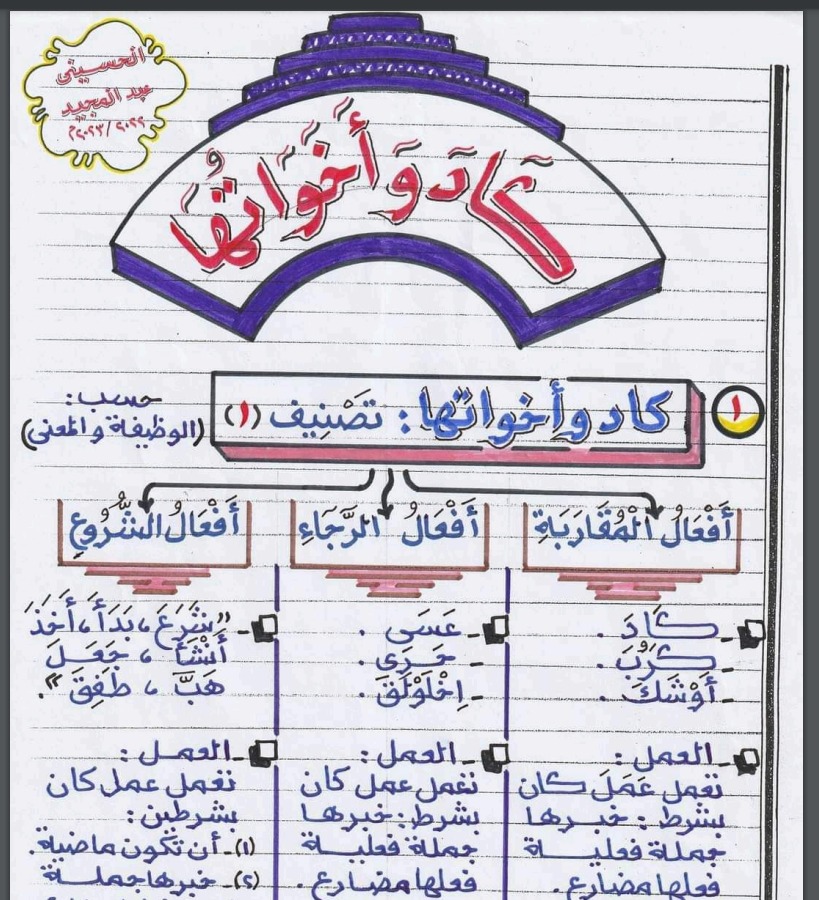 الحسيني
عبد المجيد
٢٠٢٢/٢٠٢٣م
كَادَ وَأَخَوَاتُهَا
١
كاد وأخواتها: تَصْنِيف (١)
حسب:
(الوظيفة والمعنى)
أَفْعَالُ الْمُقَارَبَةِ
- كَادَ .
- كَرُبَ .
- أَوْشَكَ .
- العمل :
تعمل عَمَلَ كان
بشرط : خبرها
جملة فعلية
فعلها مضارع .
أَفْعَالُ الرَّجَاءِ
- عَسَى .
- حَرَى .
- اِخْلَوْلَقَ .
- العمل :
تعمل عمل كان
بشرط : خبرها
جملة فعلية
فعلها مضارع .
أَفْعَالُ الشُّرُوعِ
- "شَرَعَ ، بَدَأَ ، أَخَذَ
أَنْشَأَ ، جَعَلَ
هَبَّ ، طَفِقَ" .
- العمل :
تعمل عمل كان
بشرطين :
(١)- أن تكون ماضية .
(٢)- خبرها جملة